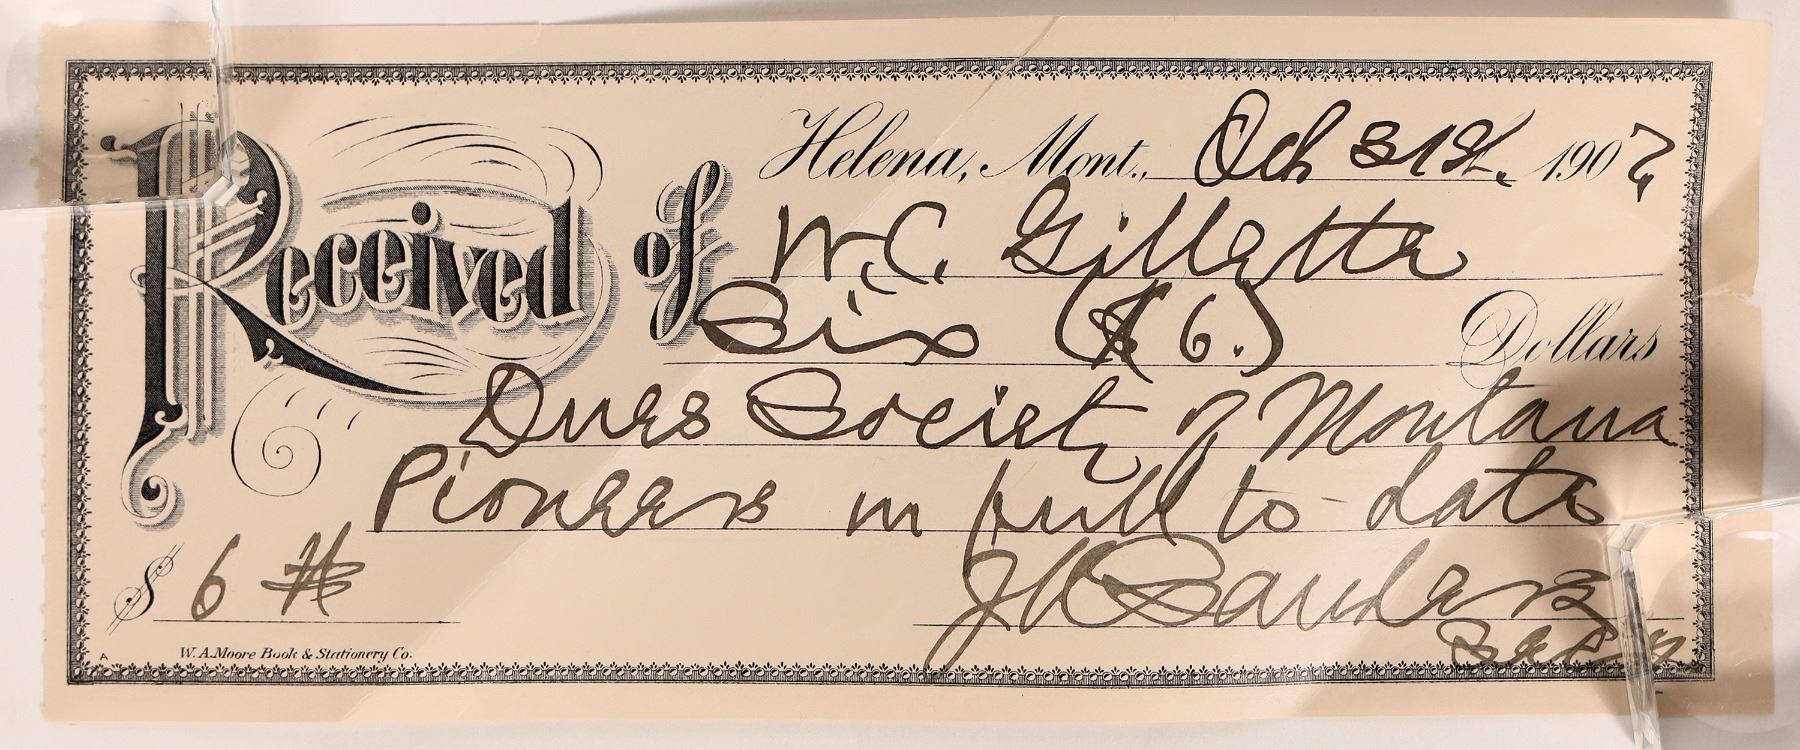 Helena, Mont., Oct 31st. 1907
Received of W.C. Gillette
Six ($6.) Dollars
Dues Society of Montana
Pioneers in full to date
$ 6
J U Sanders
Secty
W. A. Moore Book & Stationery Co.